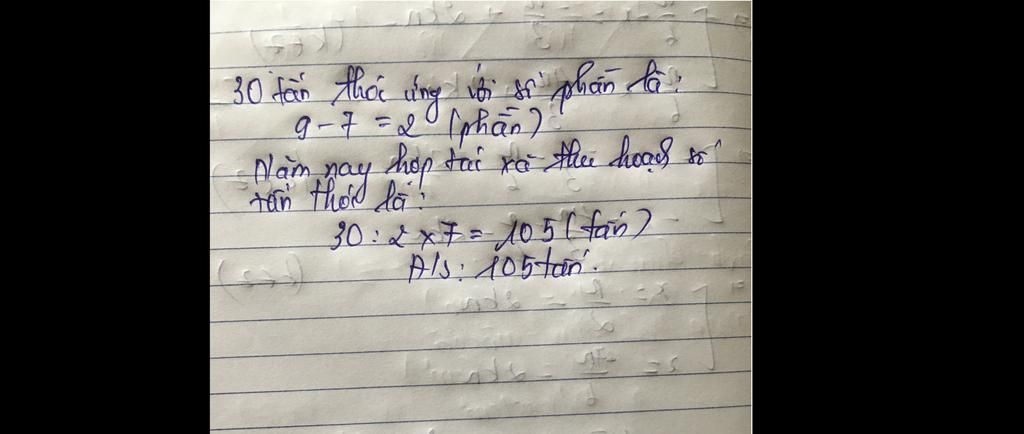 30 tấn thóc ứng với số phần là:
9 - 7 = 2 (phần)
Năm nay hợp tác xã thu hoạch số
tấn thóc là:
30 : 2 x 7 = 105 (tấn)
Đ/s: 105 tấn.